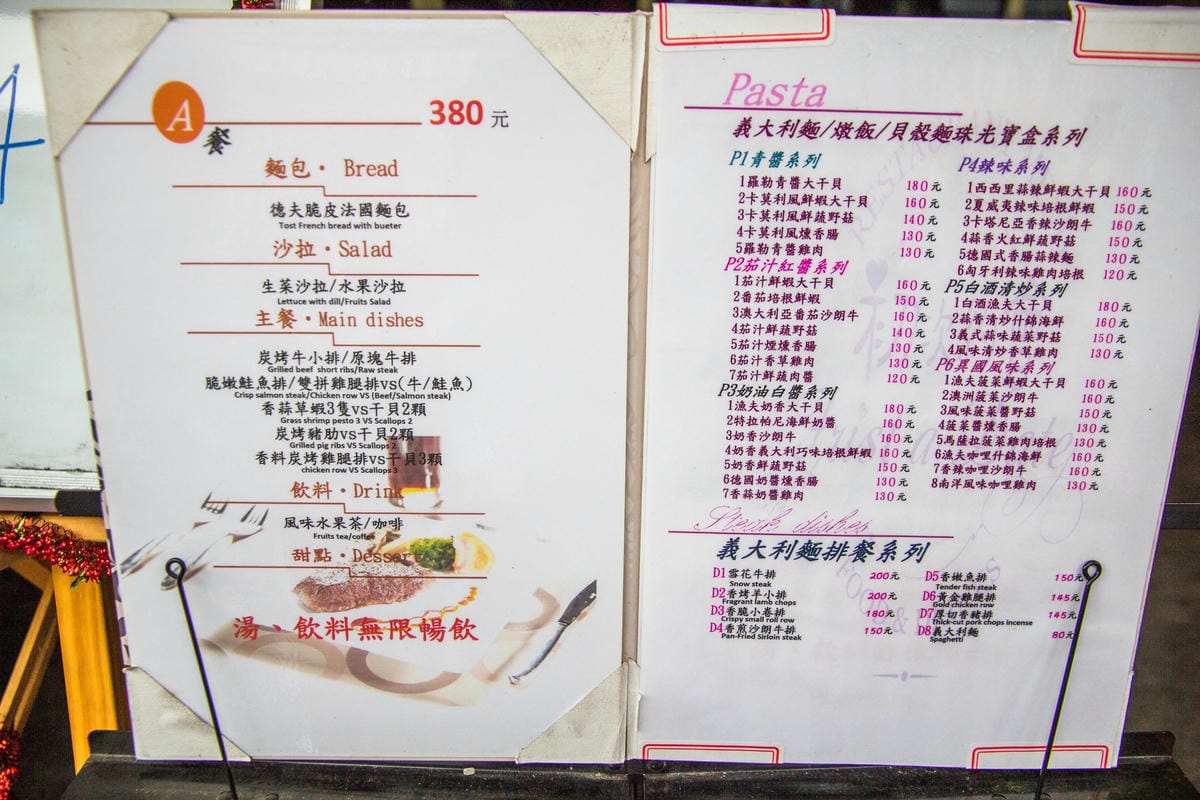 A 餐 380 元
麵包・ Bread
德夫脆皮法國麵包
Tost French bread with bueter
沙拉・Salad
生菜沙拉/水果沙拉
Lettuce with dill/Fruits Salad
主餐・Main dishes
炭烤牛小排/原塊牛排
Grilled beef short ribs/Raw steak
脆嫩鮭魚排/雙拼雞腿排vs(牛/鮭魚)
Crisp salmon steak/Chicken row VS (Beef/Salmon steak)
香蒜草蝦3隻vs干貝2顆
Grass shrimp pesto 3 VS Scallops 2
炭烤豬肋vs干貝2顆
Grilled pig ribs VS Scallops 2
香料炭烤雞腿排vs干貝3顆
chicken row VS Scallops 3
飲料・Drink
風味水果茶/咖啡
Fruits tea/coffee
甜點・Dessert
湯、飲料無限暢飲
Pasta
義大利麵/燉飯/貝殼麵珠光寶盒系列
P1青醬系列
1羅勒青醬大干貝 180元
2卡莫利風鮮蝦大干貝 160元
3卡莫利風鮮蔬野菇 140元
4卡莫利風燻香腸 130元
5羅勒青醬雞肉 130元
P2茄汁紅醬系列
1茄汁鮮蝦大干貝 160元
2番茄培根鮮蝦 150元
3澳大利亞番茄沙朗牛 160元
4茄汁鮮蔬野菇 140元
5茄汁煙燻香腸 130元
6茄汁香草雞肉 130元
7茄汁鮮蔬肉醬 120元
P3奶油白醬系列
1漁夫奶香大干貝 180元
2特拉帕尼海鮮奶醬 160元
3奶香沙朗牛 160元
4奶香義大利巧味培根鮮蝦 160元
5奶香鮮蔬野菇 150元
6德國奶醬燻香腸 130元
7香蒜奶醬雞肉 130元
P4辣味系列
1西西里蒜辣鮮蝦大干貝 160元
2夏威夷辣味培根鮮蝦 150元
3卡塔尼亞香辣沙朗牛 160元
4蒜香火紅鮮蔬野菇 150元
5德國式香腸蒜辣麵 130元
6匈牙利辣味雞肉培根 120元
P5白酒清炒系列
1白酒漁夫大干貝 180元
2蒜香清炒什錦海鮮 160元
3義式蒜味蔬菜野菇 150元
4風味清炒香草雞肉 130元
P6異國風味系列
1漁夫菠菜鮮蝦大干貝 160元
2澳洲菠菜沙朗牛 160元
3風味菠菜醬野菇 150元
4菠菜醬燻香腸 130元
5馬薩拉菠菜雞肉培根 130元
6漁夫咖哩什錦海鮮 160元
7香辣咖哩沙朗牛 160元
8南洋風味咖哩雞肉 130元
Steak dishes
義大利麵排餐系列
D1雪花牛排 200元
Snow steak
D2香烤羊小排 200元
Fragrant lamb chops
D3香脆小卷排 180元
Crispy small roll row
D4香煎沙朗牛排 150元
Pan-Fried Sirloin steak
D5香嫩魚排 150元
Tender fish steak
D6黃金雞腿排 145元
Gold chicken row
D7厚切香豬排 145元
Thick-cut pork chops incense
D8義大利麵 80元
Spaghetti